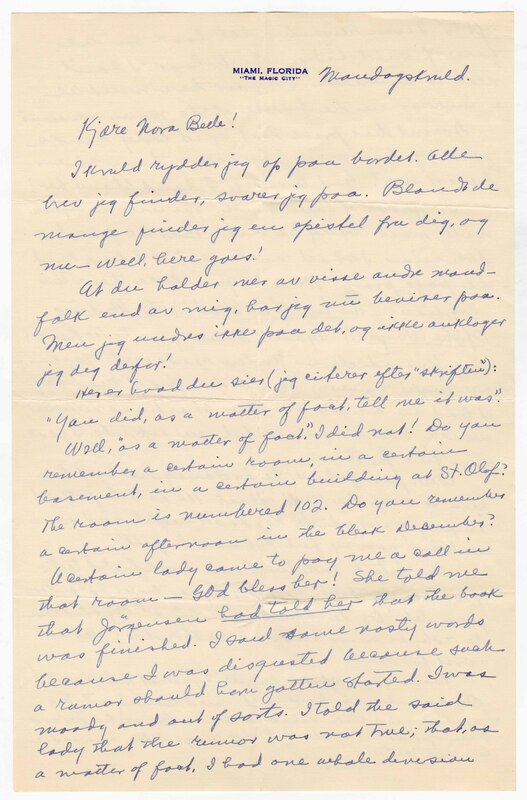 MIAMI, FLORIDA
"THE MAGIC CITY"
Mandagskveld.
Kjære Nora Belle!
I kveld rydder jeg op paa bordet. Alle
brev jeg finder, svarer jeg paa. Blandt de
mange finder jeg en epistel fra dig, og
nu — well, here goes!
At du holder mer av visse andre mand-
folk end av mig, har jeg nu beviser paa.
Men jeg undres ikke paa det, og ikke anklager
jeg dig defor!
Her er hvad du sier (jeg citerer efter "skriften"):
"You did, as a matter of fact, tell me it was".
Well, "as a matter of fact," I did not! Do you
remember a certain room, in a certain
basement, in a certain building at St. Olaf?
The room is numbered 102. Do you remember
a certain afternoon in the bleak December?
A certain lady came to pay me a call in
that room — God bless her! She told me
that Jörgensen had told her that the book
was finished. I said some nasty words
because I was disgusted because such
a rumor should have gotten started. I was
moody and out of sorts. I told the said
lady that the rumor was not true; that, as
a matter of fact, I had one whole division